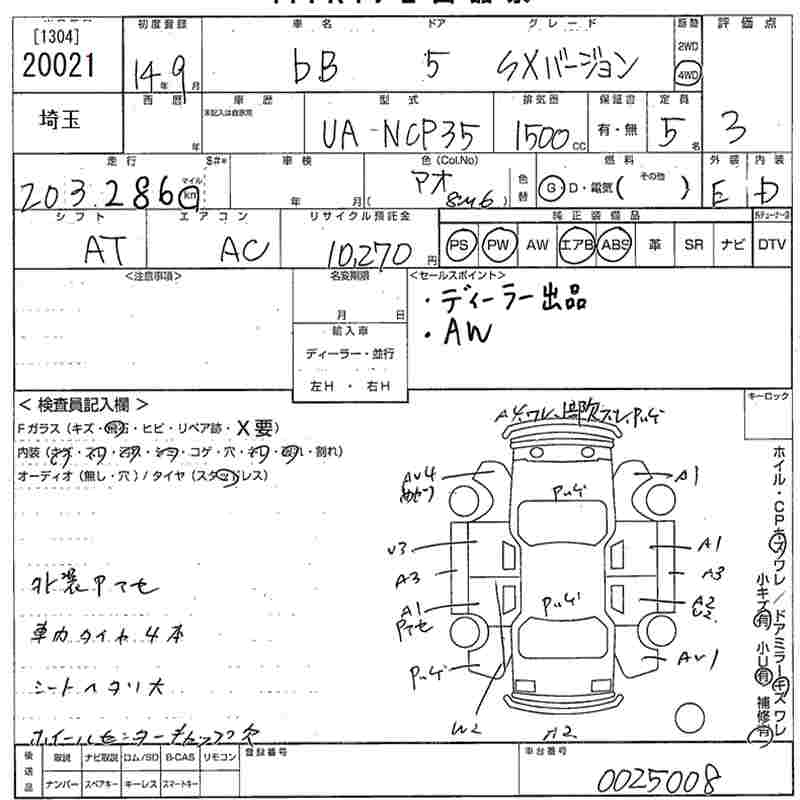 [1304]
20021
初度登録
車名
ドア
グレード
駆動
評価点
14年9月
bB
5
SXバージョン
2WD
4WD
埼玉
西暦
車歴
型式
排気量
保証書
定員
年
未記入は自家用
UA-NCP35
1500cc
有・無
5名
3
走行
S#*
車検
色(Col.No)
燃料
外装
内装
203,286
マイル
km
年 月
アオ
8M6
色替
G・D・電気( その他 )
E
D
シフト
エアコン
リサイクル預託金
純正装備品
AT
AC
10,270円
PS
PW
AW
エアB
ABS
革
SR
ナビ
DTV
<注意事項>
名変期限
<セールスポイント>
月 日
・ディーラー出品
・AW
輸入車
ディーラー・並行
左H ・ 右H
キーロック
< 検査員記入欄 >
Fガラス(キズ・飛石・ヒビ・リペア跡・X要)
オーディオ(無し・穴)/タイヤ(スタッドレス)
AV4
A1
U3
A3
A1
Pアセ
A1
A3
A2
U2
AV1
W2
A2
外装Pアセ
車内タイヤ4本
シートヘタリ大
ホイールセンターキャップ欠
ホイル・CPキズワレ/ドアミラーキズワレ
小キズ有 小U有 補修有
後送品
取説
ナビ取説
ロム/SD
B-CAS
リモコン
ナンバー
スペアキー
キーレス
スマートキー
登録番号
車台番号
0025008